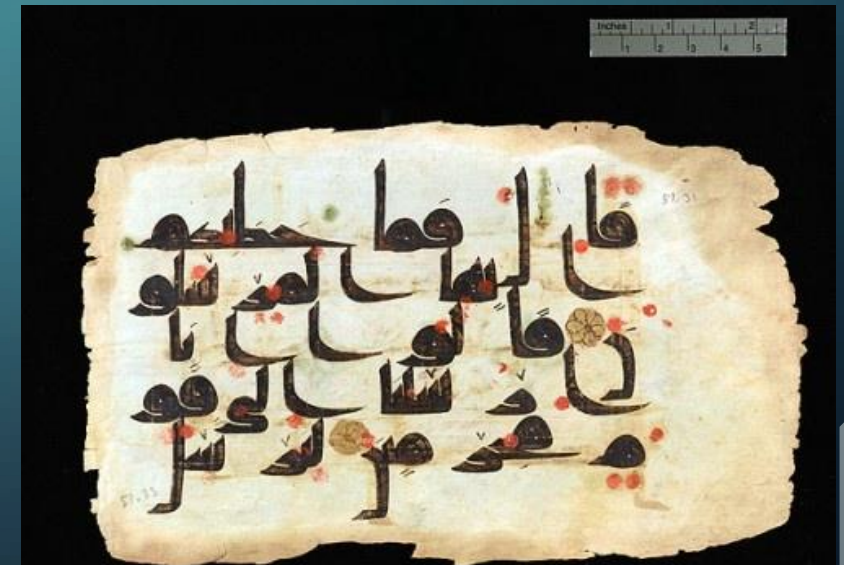 Inches 1 2
1 2 3 4 5
51.31
قال فما خطبكم
ايها المرسلو
ن قالوا انا
ارسلنا الى قو
م مجرمين لنرسل
51.33